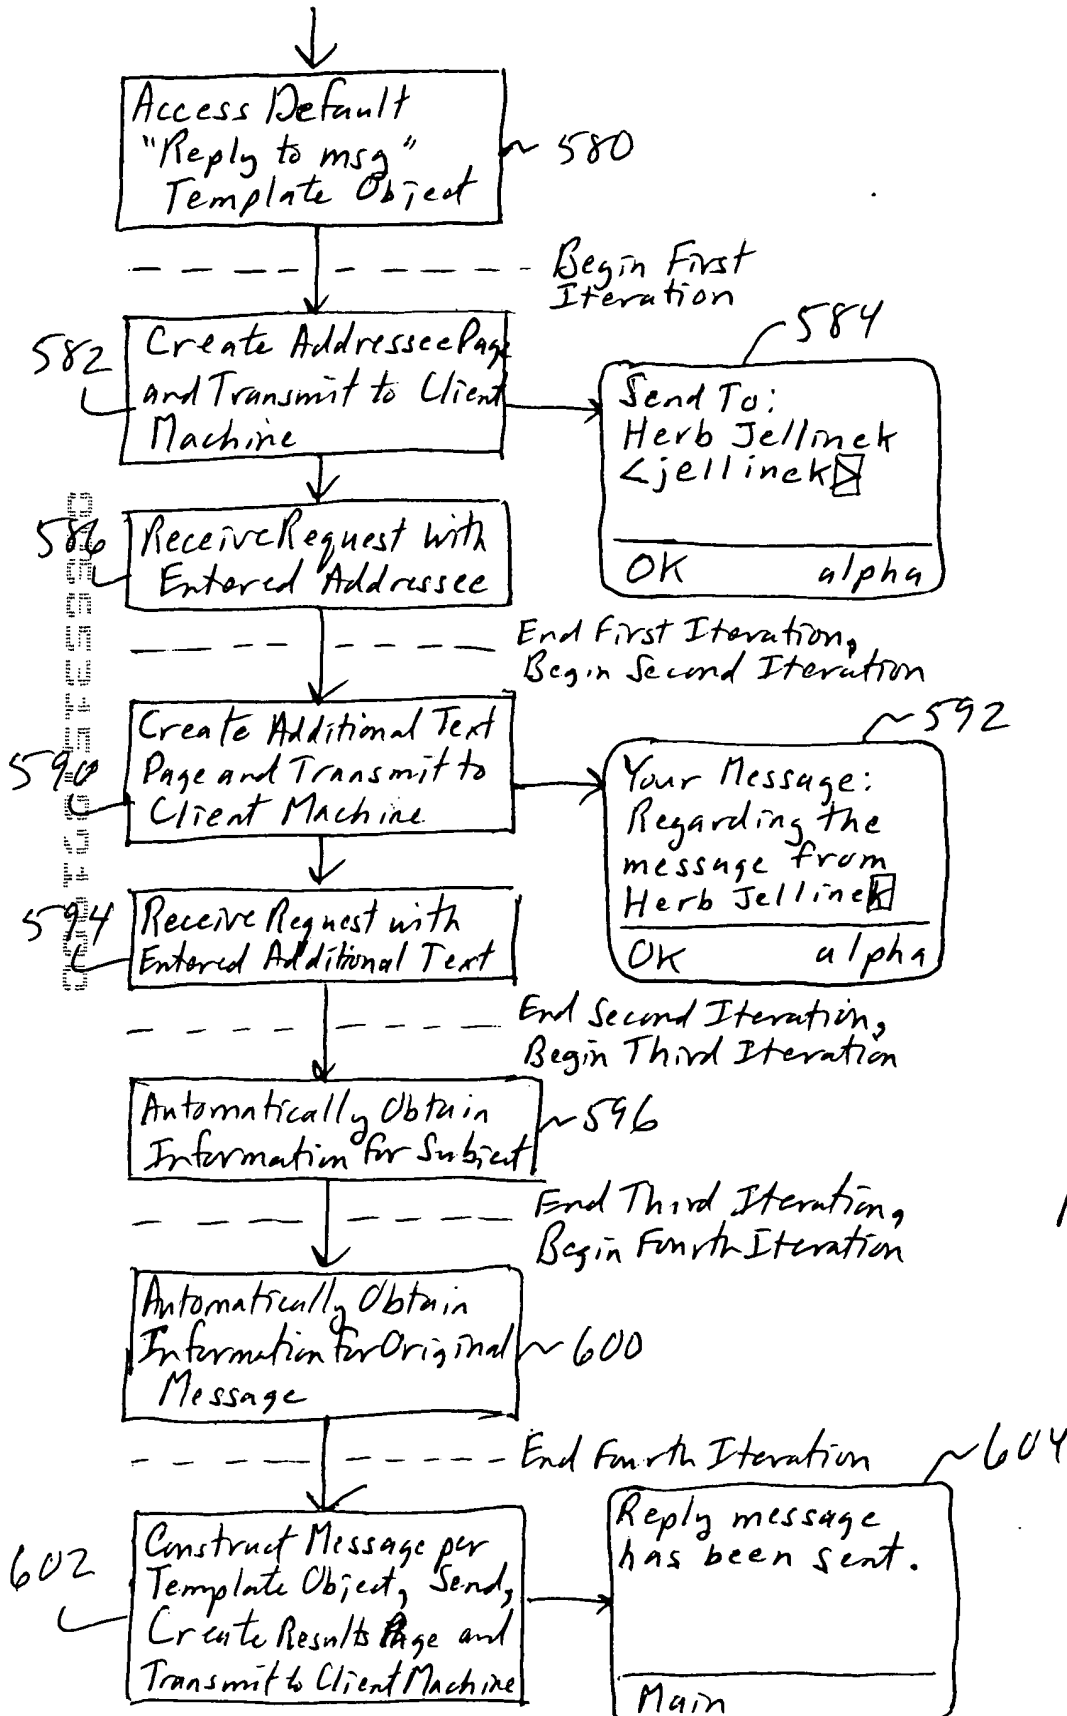 Access Default
"Reply to msg"
Template Object
580
Begin First
Iteration
582
Create Addressee Page
and Transmit to Client
Machine
584
Send To:
Herb Jellinek
<jellinek>
OK alpha
586
Receive Request with
Entered Addressee
End First Iteration,
Begin Second Iteration
590
Create Additional Text
Page and Transmit to
Client Machine
592
Your Message:
Regarding the
message from
Herb Jellinek
OK alpha
594
Receive Request with
Entered Additional Text
End Second Iteration,
Begin Third Iteration
Automatically Obtain
Information for Subject
596
End Third Iteration,
Begin Fourth Iteration
Automatically Obtain
Information for Original
Message
600
End Fourth Iteration
602
Construct Message per
Template Object, Send,
Create Results Page and
Transmit to Client Machine
604
Reply message
has been sent.
Main